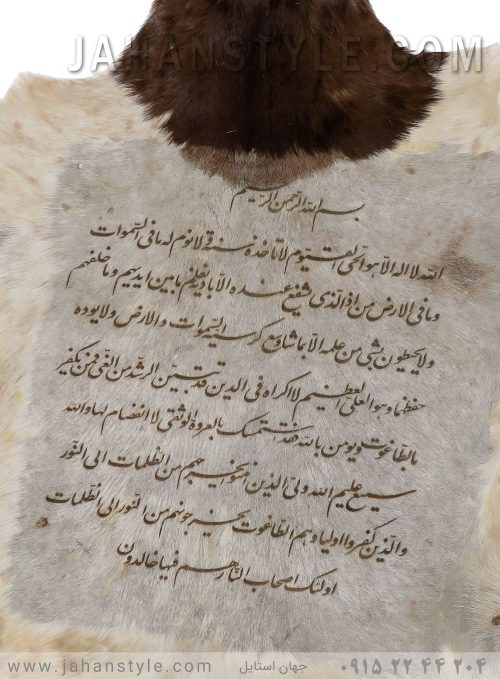 JAHANSTYLE.COM
بسم الله الرحمن الرحیم
الله لا اله الا هو الحی القیوم لا تاخذه سنة و لا نوم له ما فی السموات
و ما فی الارض من ذا الذی یشفع عنده الا باذنه یعلم ما بین ایدیهم و ما خلفهم
ولا یحیطون بشی من علمه الا بما شاء وسع کرسیه السموات والارض ولا یوده
حفظهما وهو العلی العظیم لا اکراه فی الدین قد تبین الرشد من الغی فمن یکفر
بالطاغوت و یومن بالله فقد استمسک بالعروة الوثقی لا انفصام لها والله
سمیع علیم الله ولی الذین امنوا یخرجهم من الظلمات الی النور
والذین کفروا اولیاوهم الطاغوت یخرجونهم من النور الی الظلمات
اولئک اصحاب النار هم فیها خالدون
www.jahanstyle.com جهان استایل ۰۹۱۵ ۲۲ ۴۴ ۲۰۴